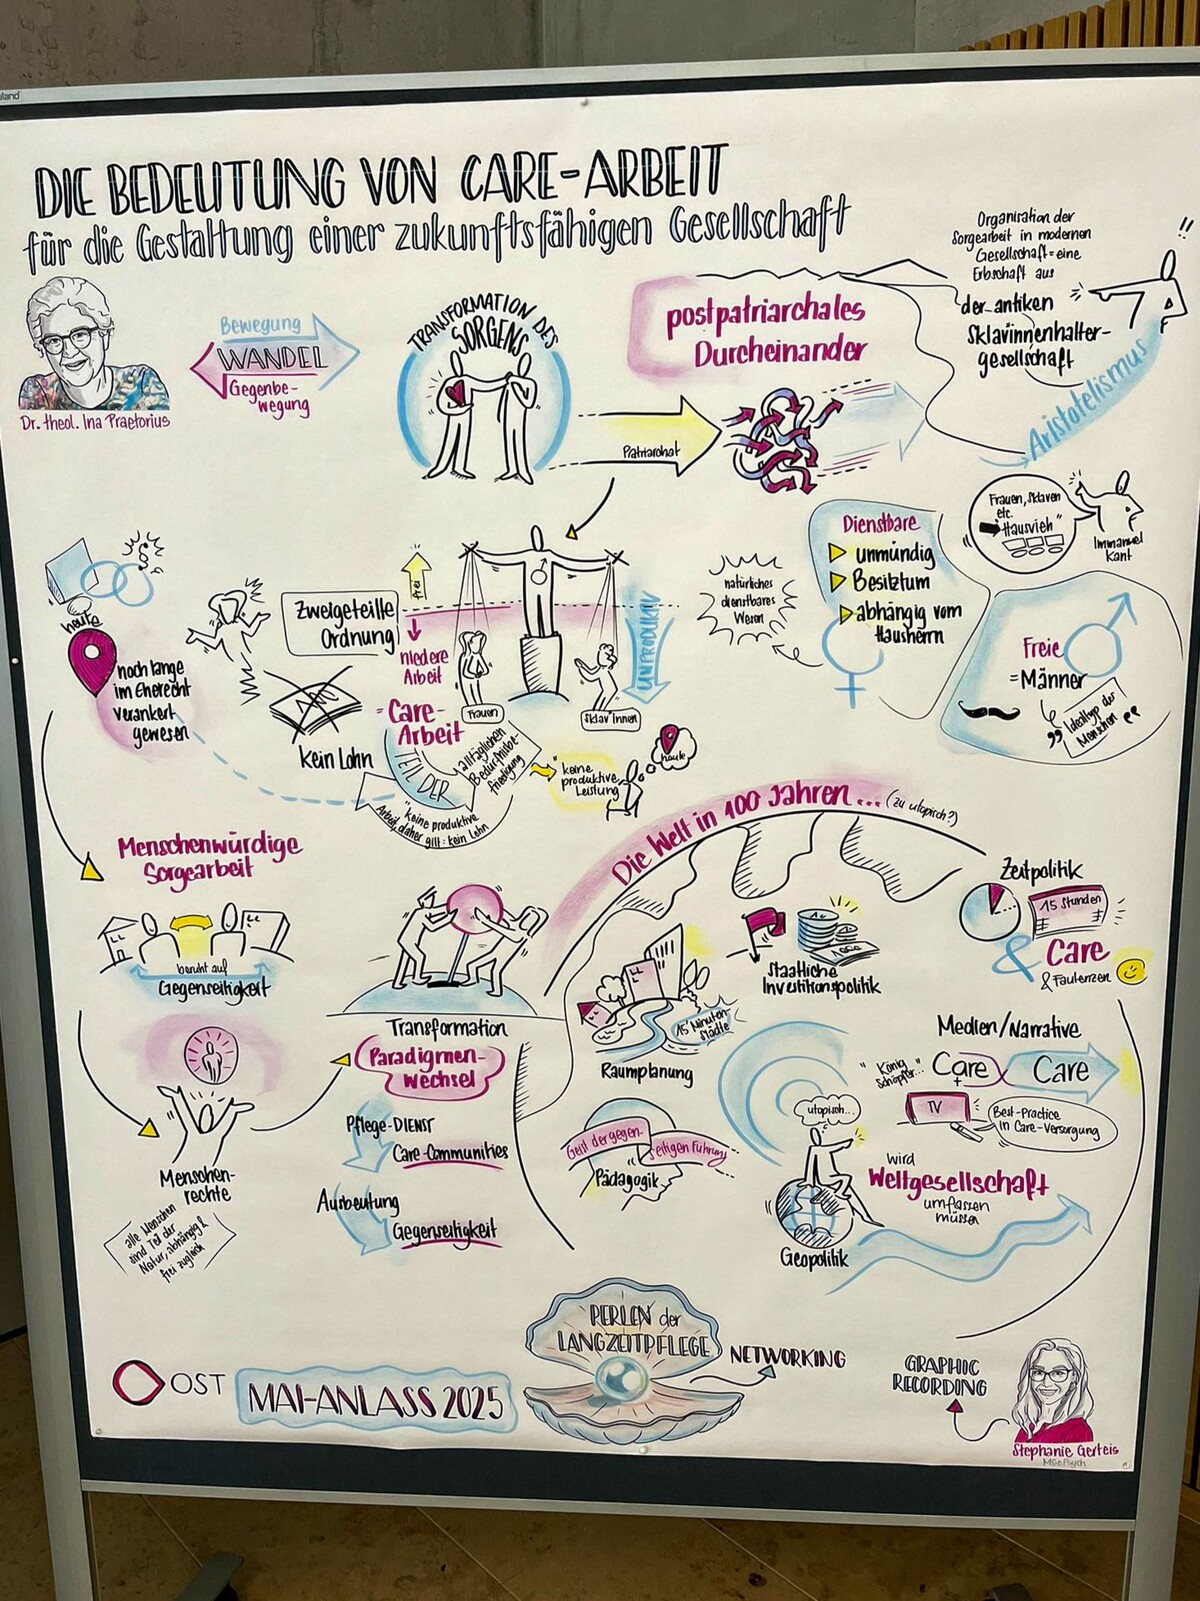 DIE BEDEUTUNG VON CARE-ARBEIT
für die Gestaltung einer zukunftsfähigen Gesellschaft
Dr. theol. Ina Praetorius
Bewegung
WANDEL
Gegenbe-
wegung
TRANSFORMATION DES
SORGENS
Patriarchat
postpatriarchales
Durcheinander
Organisation der
Sorgearbeit in modernen
Gesellschaft = eine
Erbschaft aus
der antiken
Sklavinnenhalter-
gesellschaft
!!
Aristotelismus
Frauen, Sklaven
etc.
"Hausvieh"
Immanuel
Kant
Dienstbare
unmündig
Besitztum
abhängig vom
Hausherrn
natürliches
dienstbares
Wesen
Freie
= Männer
Idealtyp der
Menschen
heute
noch lange
im Eherecht
verankert
gewesen
§
Zweigeteilte
Ordnung
frei
niedere
Arbeit
= Care-
Arbeit
Frauen
Sklav*innen
UNPRODUKTIV
kein Lohn
TEIL DER
alltäglichen
Bedürfnisbe-
friedigung
"keine produktive
Arbeit, daher gilt: kein Lohn
"keine
produktive
Leistung
heute
Menschenwürdige
Sorgearbeit
beruht auf
Gegenseitigkeit
Menschen-
rechte
alle Menschen
sind Teil der
Natur, abhängig &
frei zugleich
Transformation
Paradigmen-
wechsel
Pflege-DIENST
Care-Communities
Ausbeutung
Gegenseitigkeit
Die Welt in 100 Jahren... (zu utopisch?)
Raumplanung
15 Minuten-
Städte
Staatliche
Investitionspolitik
Zeitpolitik
15 Stunden
& Care
& Faulenzen
Medien/Narrative
"König
Schöpfer..."
Care
Care
TV
Best-Practice
in Care-Versorgung
Geist der gegen-
seitigen Führung
Pädagogik
utopisch...
Geopolitik
wird
Weltgesellschaft
umfassen
müssen
PERLEN der
LANGZEITPFLEGE
NETWORKING
OST
MAI-ANLASS 2025
GRAPHIC
RECORDING
Stephanie Gerteis
MSc Psych